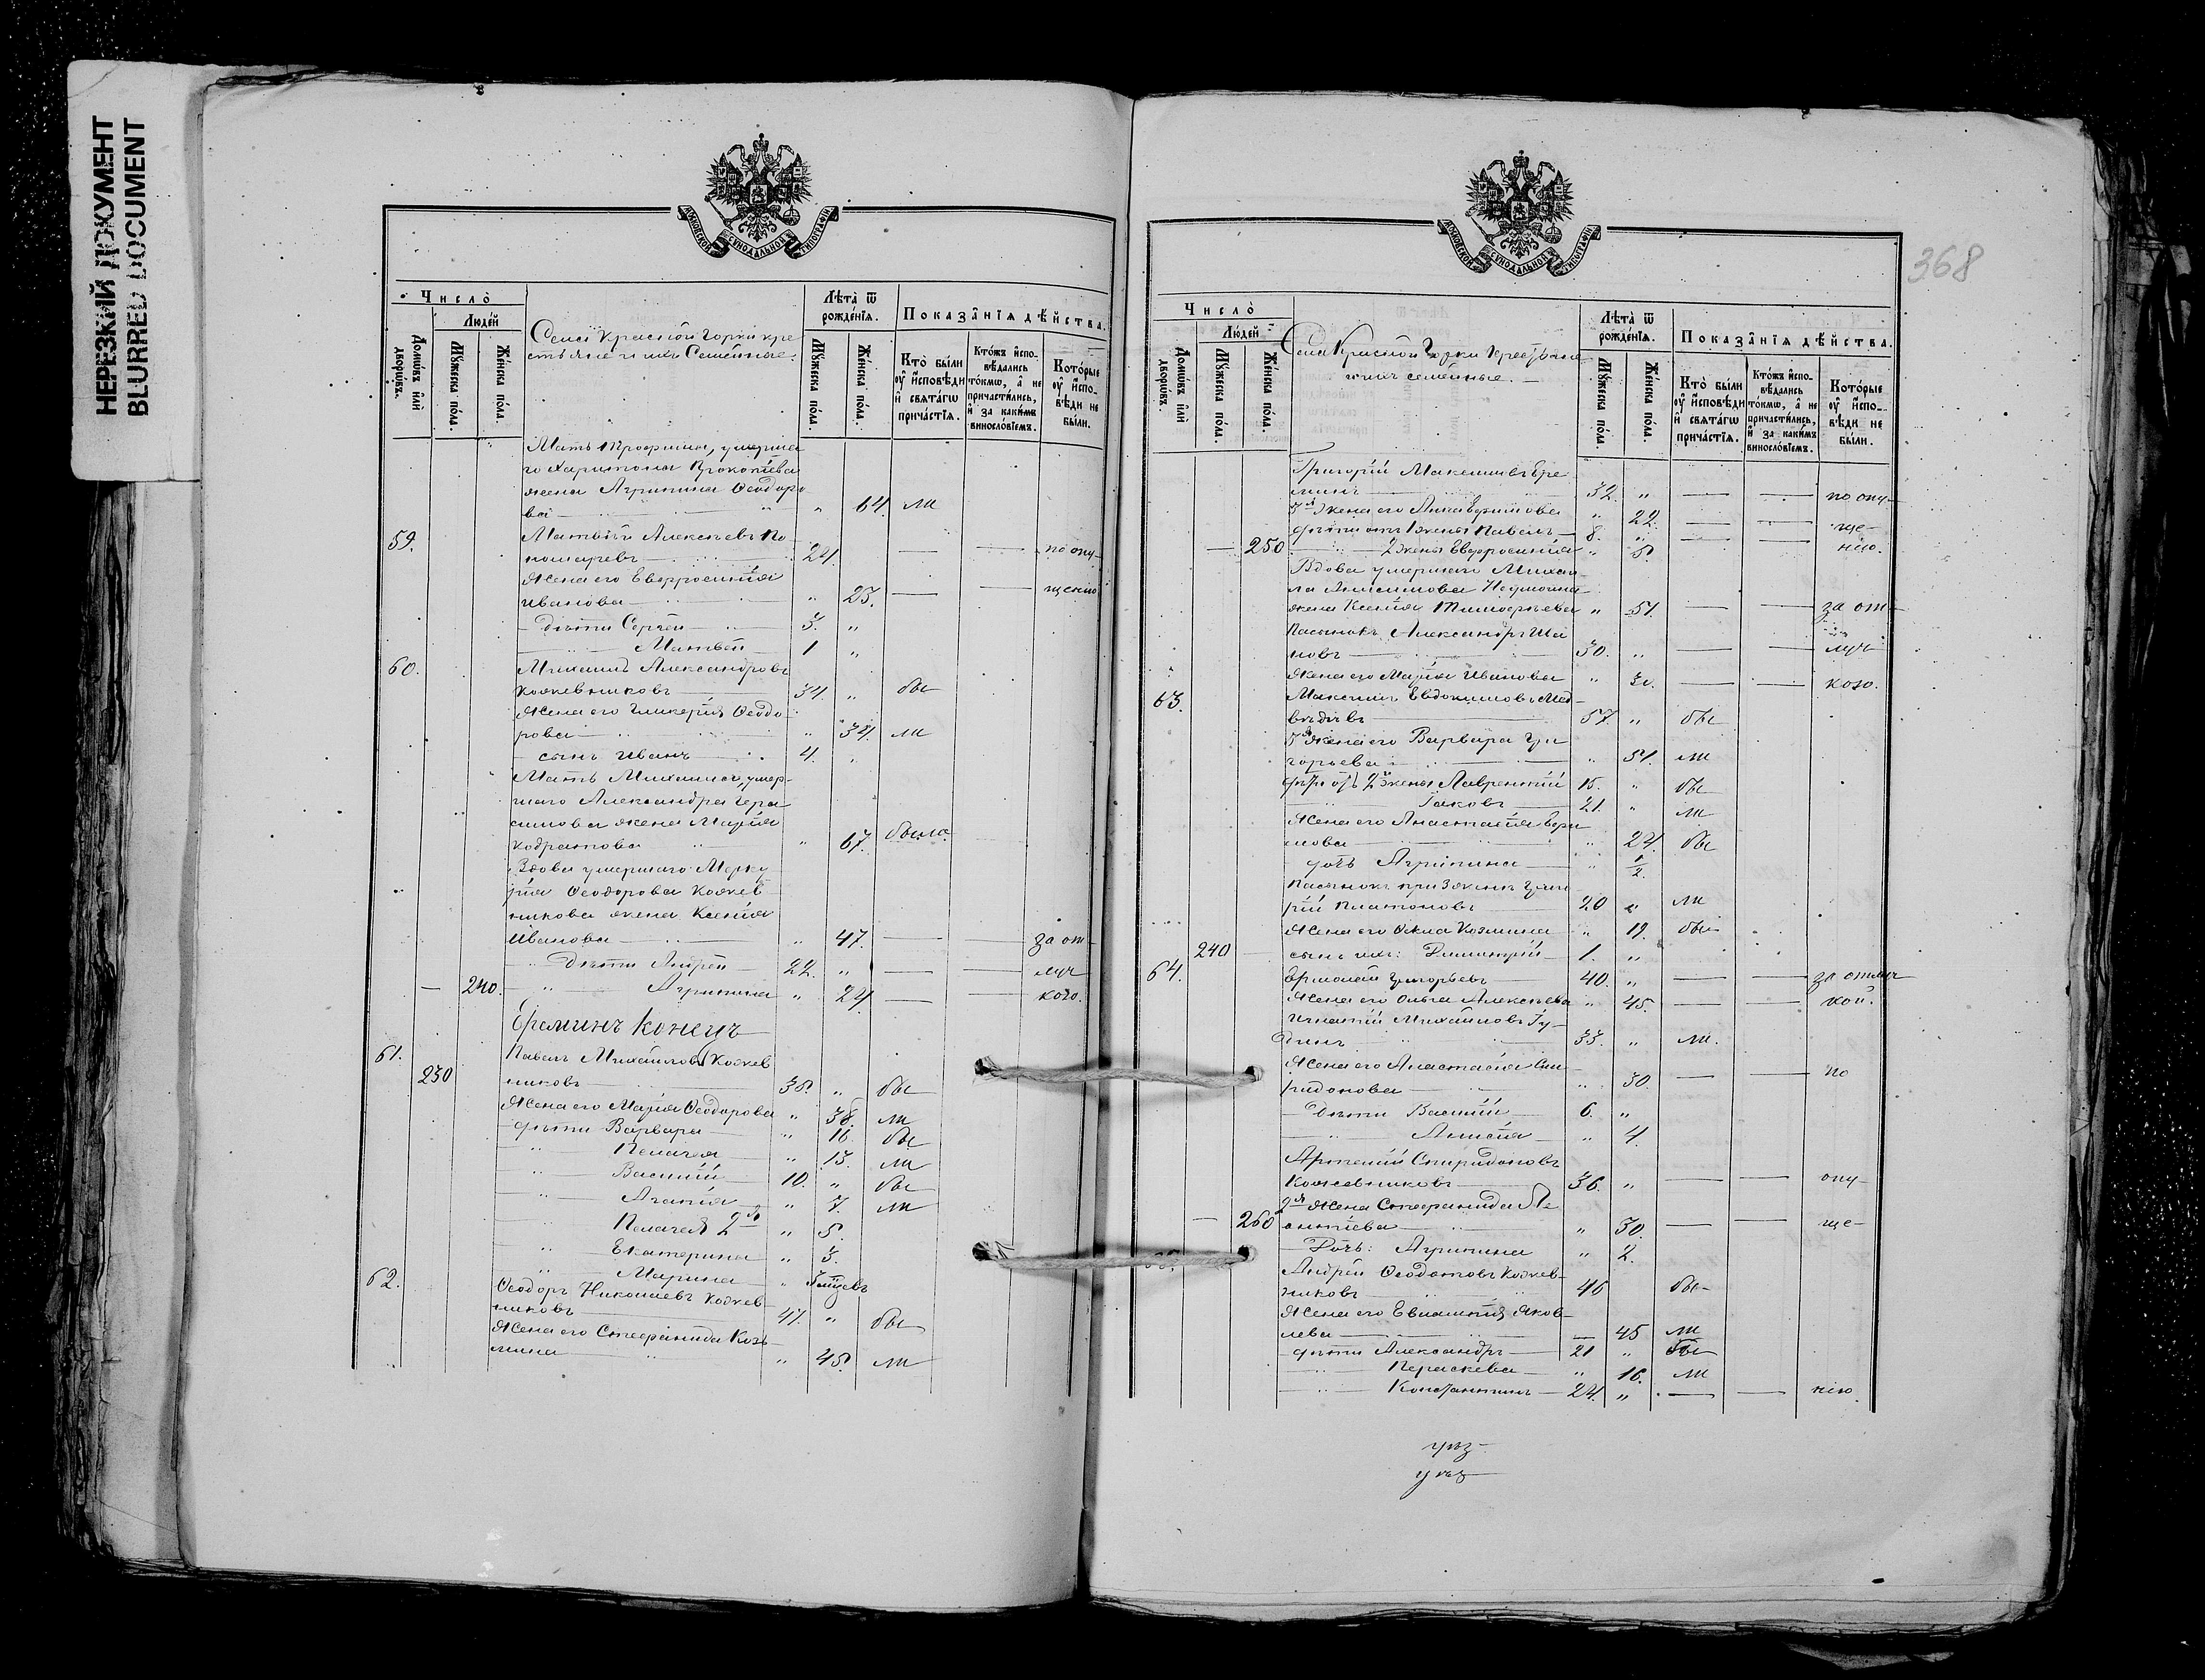 НЕРЕЗКИЙ ДОКУМЕНТ
BLURRED DOCUMENT
МОСКОВСКОЙ СѴНОДАЛЬНОЙ ТИПОГРАФІИ
Число̀
Людей
Лѣта̀ ѿ рожде́нїѧ.
Показа̂нїѧ дѣ́йства.
Домѡ́въ и҆лѝ дворѡ́въ.
Мꙋ́жеска по́ла.
Же́нска по́ла.
Села Красной Горки кре
стьяне и ихъ Семейные.
Мꙋ́жеска по́ла.
Же́нска по́ла.
Кто̀ бы́ли ᲂу҆ и҆сповѣди и҆ свѧта́гѡ прича́стїѧ.
Кто́жъ и҆спо-вѣдались то́кмѡ, а҆ не причасти́лись, и҆ за каки́мъ винослѡ́вїемъ.
Кото́рые ᲂу҆ и҆спо-вѣди не бы́ли.
Мать Трофима, умерша
го Харитона Прокопіева
жена Агрипина Ѳеодоро
ва " 64. ли
59. Матвѣй Алексѣевъ По
номаревъ 24. — — по опу-
Жена его Евфросинія
Иванова " 23. — — щенію
Дѣти Сергѣй 3. "
Матвей 1 "
60. Михаилъ Александровъ
Кожевниковъ 34. " бы
Жена его Гликерія Ѳеодо
рова " 34. ли
сынъ Иванъ 4. "
Мать Михаила, умер-
шаго Александра Гера
симова жена Марія
Кодратова " 67. была
Вдова умершаго Мерку
рія Ѳеодорова Кожев
никова жена Ксенія
Иванова " 47. — — за от-
Дѣти Андрей 22. " — — луч
— 240. " Агрипина " 24. — — кою.
Ереминъ конецъ
61. Павелъ Михайловъ Кожев
230 никовъ 38. " бы
Жена его Марія Ѳеодорова " 38. ли
дѣти Варвара " 16. бы
" Пелагея " 13. ли
" Василій 10. " бы
" Агапія " 7. ли
Пелагея 2я " 5.
" Екатерина " 3.
" Марина "
62. Ѳеодоръ Николаевъ Кожев
никовъ 47. " бы
Жена его Стефанида Козь
мина " 45. ли
368
МОСКОВСКОЙ СѴНОДАЛЬНОЙ ТИПОГРАФІИ
Число̀
Людей
Лѣта̀ ѿ рожде́нїѧ.
Показа̂нїѧ дѣ́йства.
Домѡ́въ и҆лѝ дворѡ́въ.
Мꙋ́жеска по́ла.
Же́нска по́ла.
Села Красной Горки Крестьяне
и ихъ семейные.
Мꙋ́жеска по́ла.
Же́нска по́ла.
Кто̀ бы́ли ᲂу҆ и҆сповѣди и҆ свѧта́гѡ прича́стїѧ.
Кто́жъ и҆спо-вѣдались то́кмѡ, а҆ не причасти́лись, и҆ за каки́мъ винослѡ́вїемъ.
Кото́рые ᲂу҆ и҆спо-вѣди не бы́ли.
Григорій Максимовъ Ере
минъ 32. " — — по опу-
жена его Анна " 22. — — ще-
дѣти отъ 1 жены Павелъ 8. " — — нію.
— 250 2 жены Евфросинія " 5.
Вдова умершаго Михаи
ла Анисимова
жена Ксенія Тимофѣева " 51. — — за от-
Пасынокъ Александръ Ива
новъ 30. " — — луч
Жена его Марія Иванова " — — кою.
63. Максимъ Евдокимовъ Мед
вѣдевъ 57. " бы
3я жена его Варвара Гри
горьева " 51. ли
дѣти отъ 2й жены Лаврентій 15. " бы
" Іаковъ 21. " ли
Жена его Анастасія
мова " 24. бы
дочь Агрипина " 1/2.
Пасынокъ при 3 женѣ
рій Платоновъ 20 " ли
Жена его Ѳекла Козмина " 19. бы
240 сынъ ихъ: Димитрій 1. "
64. Ермолай Григорьевъ 40. " — — за отлуч
Жена его Ольга Алексѣева " 45. — — кой.
Игнатій Михайловъ Гу-
динъ 33. " ли.
Жена его Анастасія Спи
ридонова " 30. — — по
Дѣти Василій 6. "
" Анисія " 4.
Артемій Спиридоновъ
Кожевниковъ 36. " — — опу-
2я Жена Стефанида Ле
— 260 онтіева " 30. — — ще-
Дочь: Агрипина " 2.
Андрей Ѳеодотовъ Кожев-
никовъ 46 бы-
Жена его Евлампія Яков-
лева — 45 ли
дѣти Александръ 21 " бы
" Параскева " 16. ли
" Константинъ 24. " — — нію.